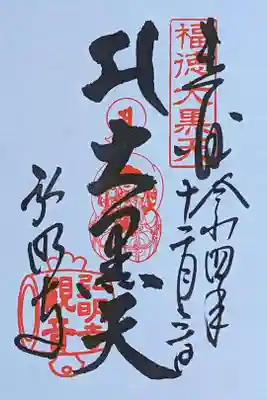 奉拝
福徳大黒天
令和四年
十二月
大黒天
弘明寺
弘明寺
観音